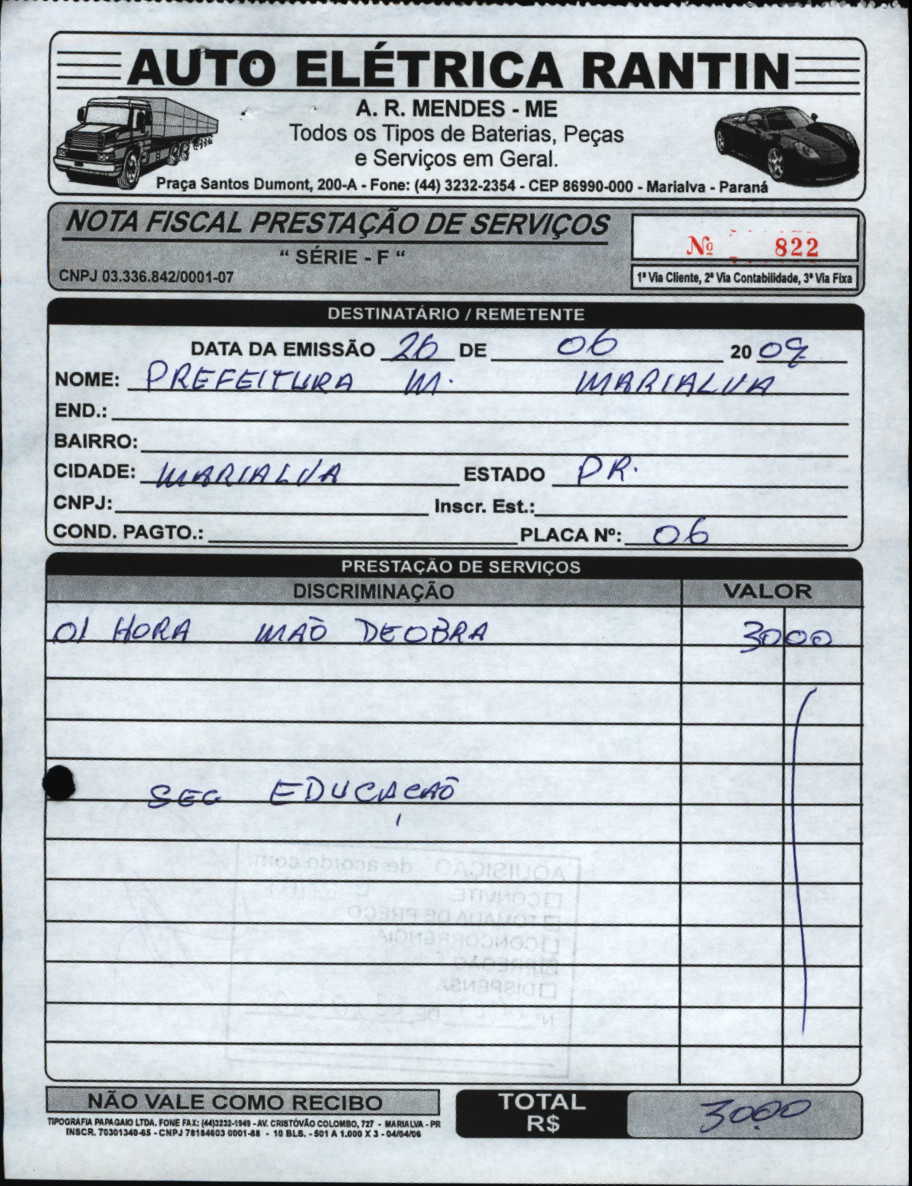 AUTO ELÉTRICA RANTIN
A. R. MENDES - ME
Todos os Tipos de Baterias, Peças
e Serviços em Geral.
Praça Santos Dumont, 200-A - Fone: (44) 3232-2354 - CEP 86990-000 - Marialva - Paraná
NOTA FISCAL PRESTAÇÃO DE SERVIÇOS
" SÉRIE - F "
CNPJ 03.336.842/0001-07
Nº 822
1ª Via Cliente, 2ª Via Contabilidade, 3ª Via Fixa
DESTINATÁRIO / REMETENTE
DATA DA EMISSÃO 26 DE 06 20 09
NOME: PREFEITURA M. MARIALVA
END.:
BAIRRO:
CIDADE: MARIALVA ESTADO PR.
CNPJ: Inscr. Est.:
COND. PAGTO.: PLACA Nº: 06
PRESTAÇÃO DE SERVIÇOS
DISCRIMINAÇÃO VALOR
01 HORA MÃO DEOBRA 3000
SEC EDUCAÇÃO
AQUISIÇÃO de acordo com:
CONVITE
TOMADA DE PREÇO
CONCORRÊNCIA
PREGÃO
DISPENSA
NÃO VALE COMO RECIBO
TIPOGRAFIA PAPAGAIO LTDA. FONE FAX: (44)3232-1949 - AV. CRISTÓVÃO COLOMBO, 727 - MARIALVA - PR
INSCR. 70301340-65 - CNPJ 78184603 0001-88 - 10 BLS. - 501 A 1.000 X 3 - 04/04/06
TOTAL
R$ 3000